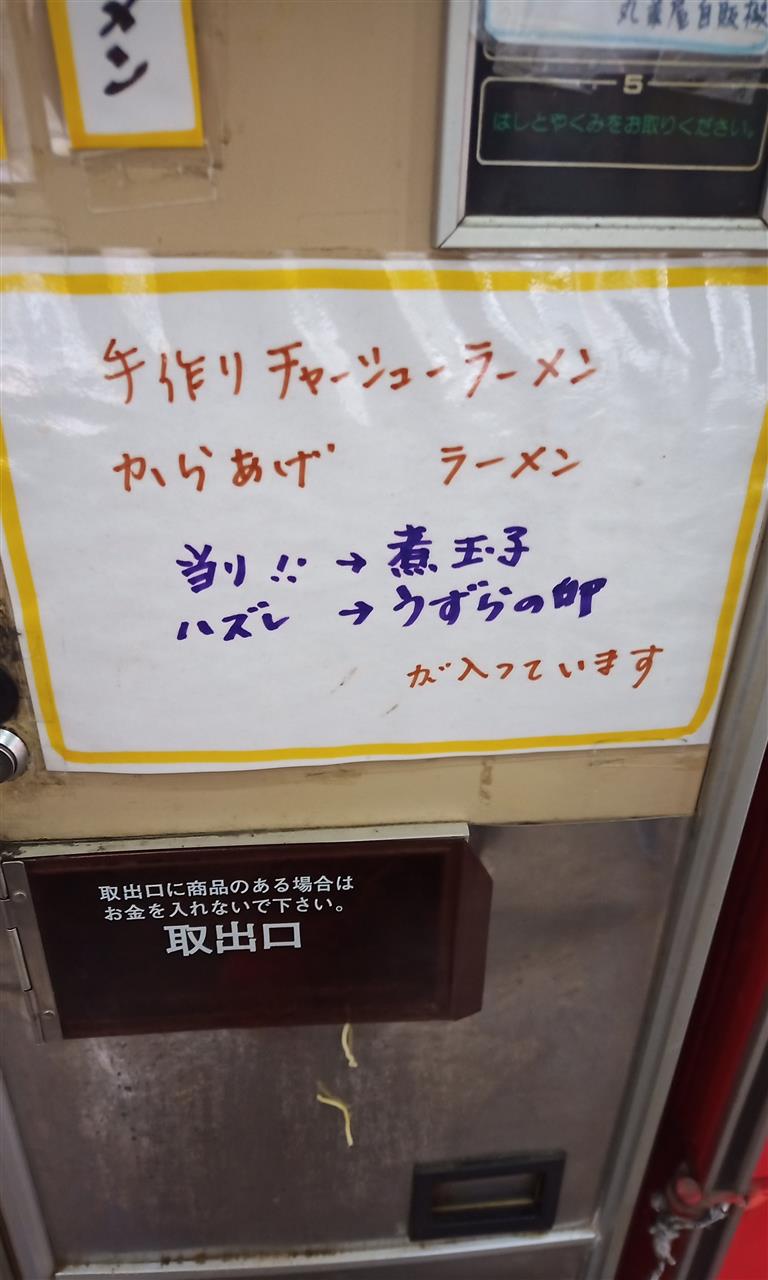 メン
自販機
5
はしとやくみをお取りください。
手作りチャーシューラーメン
からあげ ラーメン
当り!! → 煮玉子
ハズレ → うずらの卵
が入っています
取出口に商品のある場合は
お金を入れないで下さい。
取出口